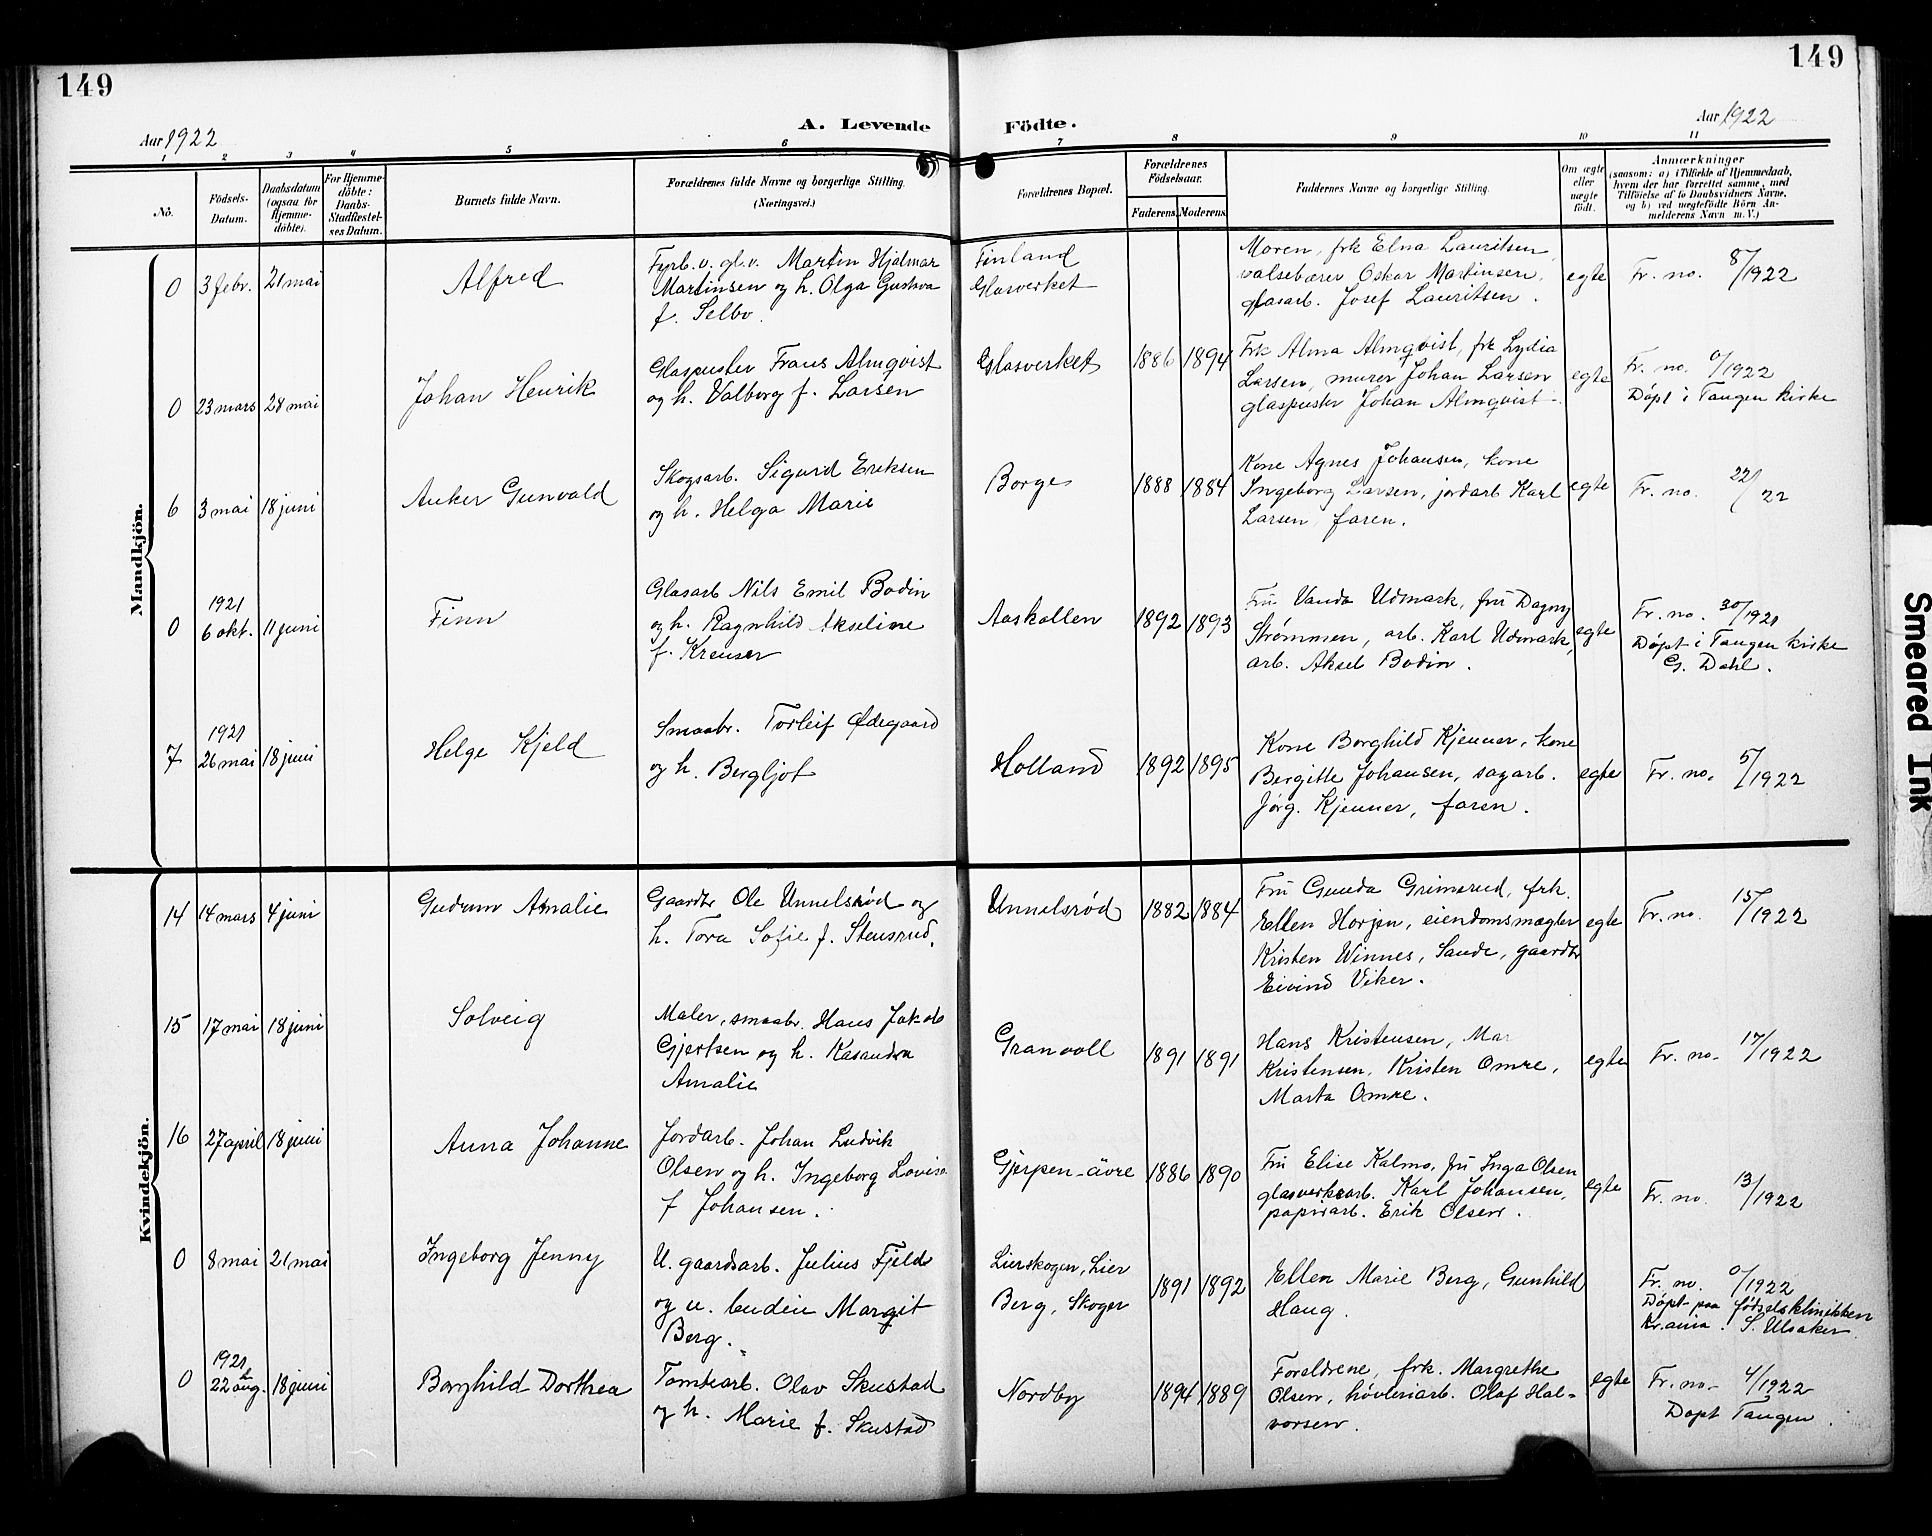 149
149
A. Levende Födte.
Aar 1922
Aar 1922
1 2 3 4 5 6 7 8 9 10 11
No.
Födsels-Datum.
Daabsdatum (ogsaa for Hjemme-döbte).
For Hjemme-döbte: Daabs-Stadfæstel-ses Datum.
Barnets fulde Navn.
Forældrenes fulde Navne og borgerlige Stilling. (Næringsvei.)
Forældrenes Bopæl.
Forældrenes Födselsaar.
Faderens. Moderens.
Faddernes Navne og borgerlige Stilling.
Om ægte eller uægte födt.
Anmærkninger
(saasom: a) i Tilfælde af Hjemmedaab,
hvem der har forrettet samme, med
Tilföielse af to Daabsvidners Navne,
og b) ved uægtefödte Börn An-
melderens Navn m. V.)
Mandkjön.
0 3 febr. 21 mai
Alfred
Fyrb. v. gl.v. Martin Hjalmar
Martinsen og h. Olga Gustava
f. Selbo.
Finland
Glasverket
Moren, frk Elna Lauritsen,
valsebærer Oskar Martinsen,
glasarb. Josef Lauritsen.
egte
Fr. no. 8/1922
0 23 mars 28 mai
Johan Henrik
Glaspuster Frans Almqvist
og h. Valborg f. Larsen
Glasverket
1886 1894
Frk Alma Almqvist, frk Lydia
Larsen, murer Johan Larsen
glaspuster Johan Almqvist.
egte
Fr. no. 0/1922
Döpt i Tangen kirke
6 3 mai 18 juni
Anker Gunvald
Skogsarb. Sigurd Eriksen
og h. Helga Marie
Borge
1888 1884
Kone Agnes Johansen, kone
Ingeborg Larsen, jordarb Karl
Larsen, faren.
egte
Fr. no. 22/22
0 1921
6 okt. 11 juni
Finn
Glasarb Nils Emil Bodin
og h. Ragnhild Akseline
f. Kreuser
Aaskollen
1892 1893
Fru Vanda Udmark, fru Dagny
Strømmen, arb. Karl Udmark,
arb. Aksel Bodin.
egte
Fr. no. 30/1921
Döpt i Tangen kirke
G. Dahl.
7 1921
26 mai 18 juni
Helge Kjeld
Smaabr. Torleif Ødegaard
og h. Bergljot
Holland
1892 1895
Kone Borghild Kjenner, kone
Bergitte Johansen, sagarb.
Jørg. Kjenner, faren.
egte
Fr. no. 5/1922
Kvindekjön.
14 14 mars 4 juni
Gudrun Amalie
Gaardbr Ole Unnelsrød og
h. Tora Sofie f. Stensrud.
Unnelsrød
1882 1884
Fru Gunda Grimsrud, frk.
Ellen Horjen, eiendomsmægler
Kristen Winnes, Sande, gaardbr
Eivind Viker.
egte
Fr. no. 15/1922
15 17 mai 18 juni
Solveig
Maler, smaabr. Hans Jakob
Gjertsen og h. Kasandra
Amalie
Granvoll
1891 1891
Hans Kristensen, Mar
Kristensen, Kristen Omre,
Marta Omre.
egte
Fr. no. 17/1922
16 27 april 18 juni
Anna Johanne
Jordarb. Johan Ludvik
Olsen og h. Ingeborg Lovise
f Johansen.
Gjerpen-øvre
1886 1890
Fru Elise Kalmo, fru Inga Olsen
glasverksarb. Karl Johansen,
papirarb. Erik Olsen.
egte
Fr. no. 13/1922
0 8 mai 21 mai
Ingeborg Jenny
U. gaardsarb. Julius Fjeld
og u. budeie Margit
Berg.
Lierskogen, Lier
Berg, Skoger
1891 1892
Ellen Marie Berg, Gunhild
Haug.
Fr. no. 0/1922
Döpt paa fødselsklinikken
Kr.ania. S. Ulsaker.
0 1921
22 aug. 18 juni
Borghild Dorthea
Tomtearb. Olav Skustad
og h. Marie f. Skustad
Nordby
1894 1889
Foreldrene, frk. Margrethe
Olsen, høvleriarb. Olaf Hal-
vorsen.
egte
Fr. no. 4/1922
Döpt Tangen.
Smeared Ink